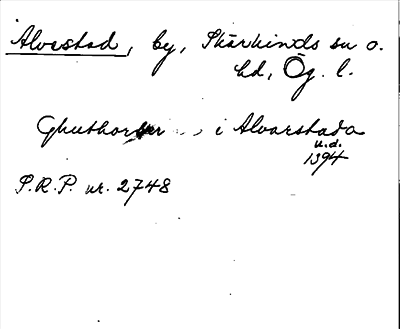 Alvestad, by, Skärkinds sn o.
hd, Ög. l.
Ghuthormer . . i Alvarstada
u.d.
1394
S.R.P. nr. 2748